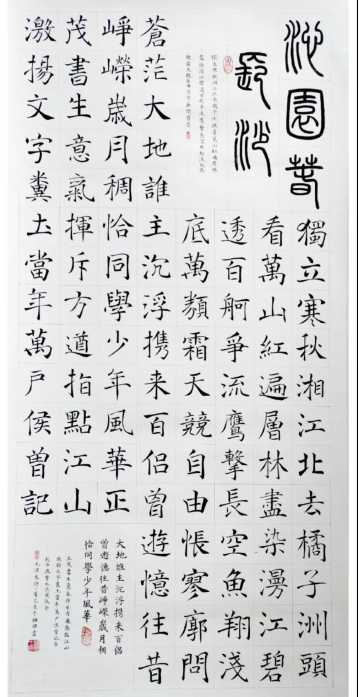 沁園春
長沙
獨立寒秋湘江北去橘子洲頭
看萬山紅遍層林盡染漫江碧
透百舸爭流鷹擊長空魚翔淺
底萬類霜天競自由悵寥廓問
蒼茫大地誰主沉浮携来百侣曾遊憶往昔
崢嶸嵗月稠恰同學少年風華正
茂書生意氣揮斥方遒指點江山
激揚文字糞土當年萬户侯曾記
大地誰主沉浮携来百侣
曾遊憶往昔崢嶸嵗月稠
恰同學少年風華